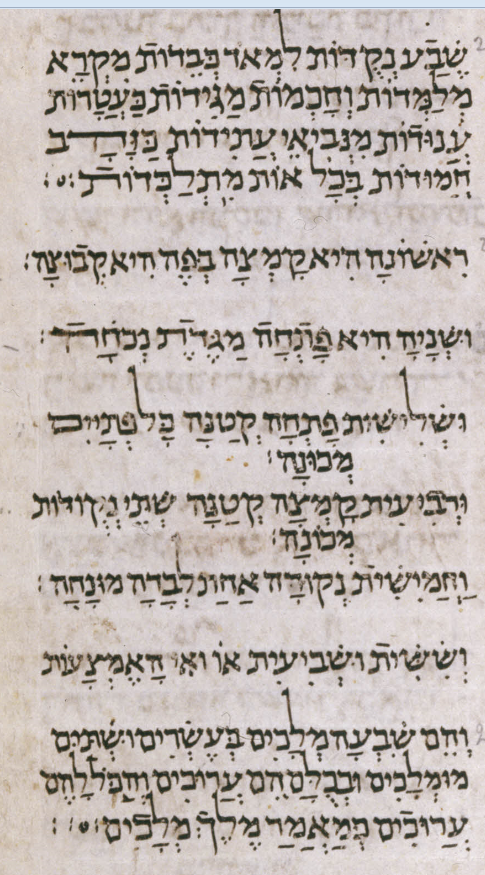 שֶׁבַע נְקֻדּוֹת לִמְאֹד כְּבֵדוֹת מִקְרָא
מְלַמְּדוֹת וַחֲכָמוֹת מַגִּידוֹת כַּעֲטָרוֹת
עֲנוּדוֹת מִנְּבִיאֵי עֲתִידוֹת
חֲמוּדוֹת בְּכָל אוֹת מִתְלַכְּדוֹת׃
רִאשׁוֹנָה הִיא קָמְצָה בְּפֶה הִיא קְבוּצָה׃
וּשְׁנִיָּה הִיא פָּתְחָה
וּשְׁלִישִׁית פָּתְחָה קְטַנָּה כָּל פְּתָיִים
מְכוּנָה׃
וּרְבִיעִית קָמְצָה קְטַנָּה שְׁתֵּי נְקוּדּוֹת
מְכוּנָה׃
וַחֲמִישִׁית נְקוּדָּה אַחַת לְבַדָּהּ מוּנָחָה׃
וְשִׁשִּׁית וּשְׁבִיעִית אוֹ וְאִי הָאֶמְצָעוֹת
וְהֵם שִׁבְעָה מְלָכִים בְּעֶשְׂרִים וּשְׁתַּיִם
מוּמְלָכִים וּבְכֻלָּם הֵם עֲרוּבִים
עֲרוּבִים כְּמַאֲמַר מֶלֶךְ מְלָכִים׃